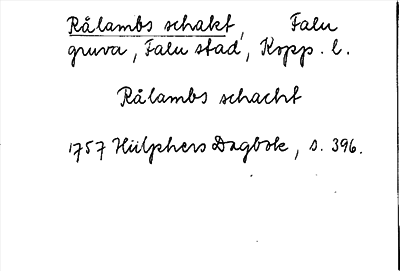 Rålambs schakt, Falu
gruva, Falu stad, Kopp. l.
Rålambs schacht
1757 Hülphers Dagbok, s. 396.